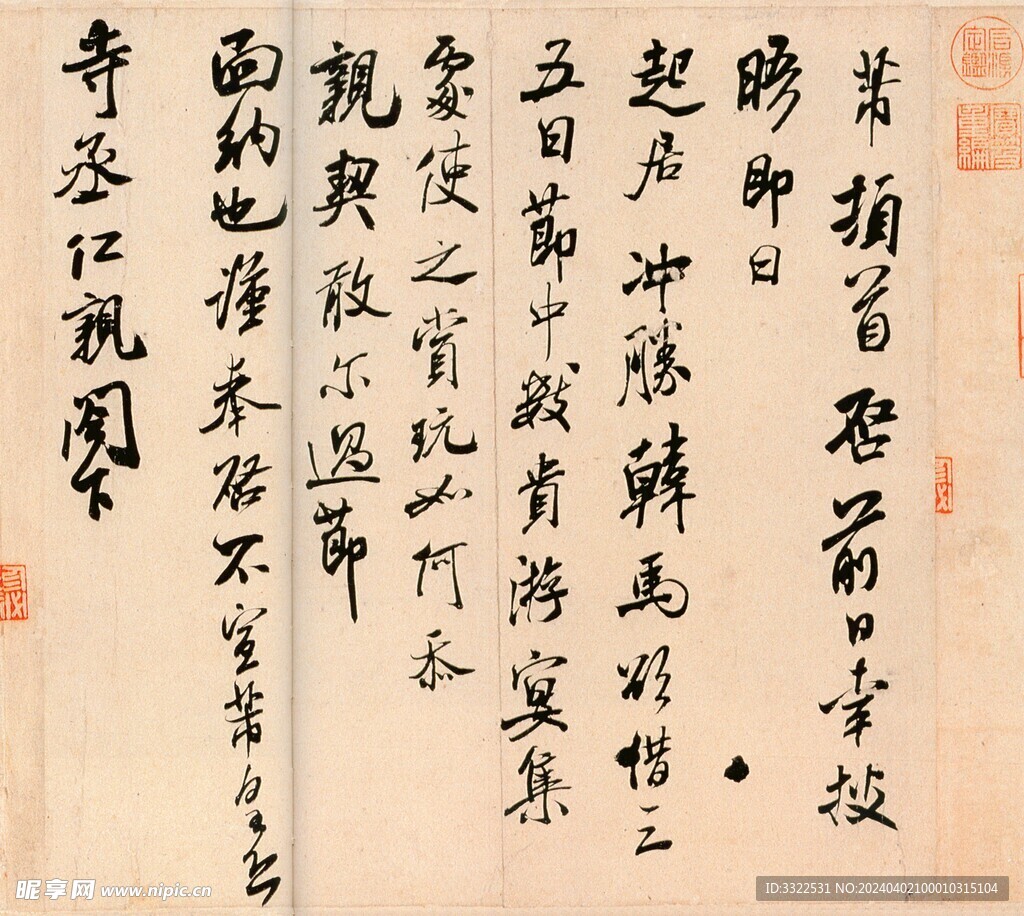 芾頓首啓前日幸披
晤即日
起居沖勝韓馬欲借三
五日節中數貴游宴集
處使之賞玩如何忝
親契敢尔過節
面納也謹奉啓不宣芾皇恐
寺丞仁親閣下
石渠定鑑
寶笈重編
昵享网 www.nipic.cn
ID:3322531 NO:20240402100010315104